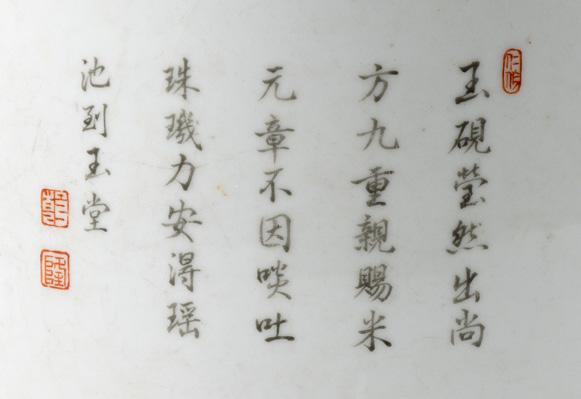 玉硯瑩然出尚
方九重親賜米
元章不因啖吐
珠璣力安得瑶
池到玉堂